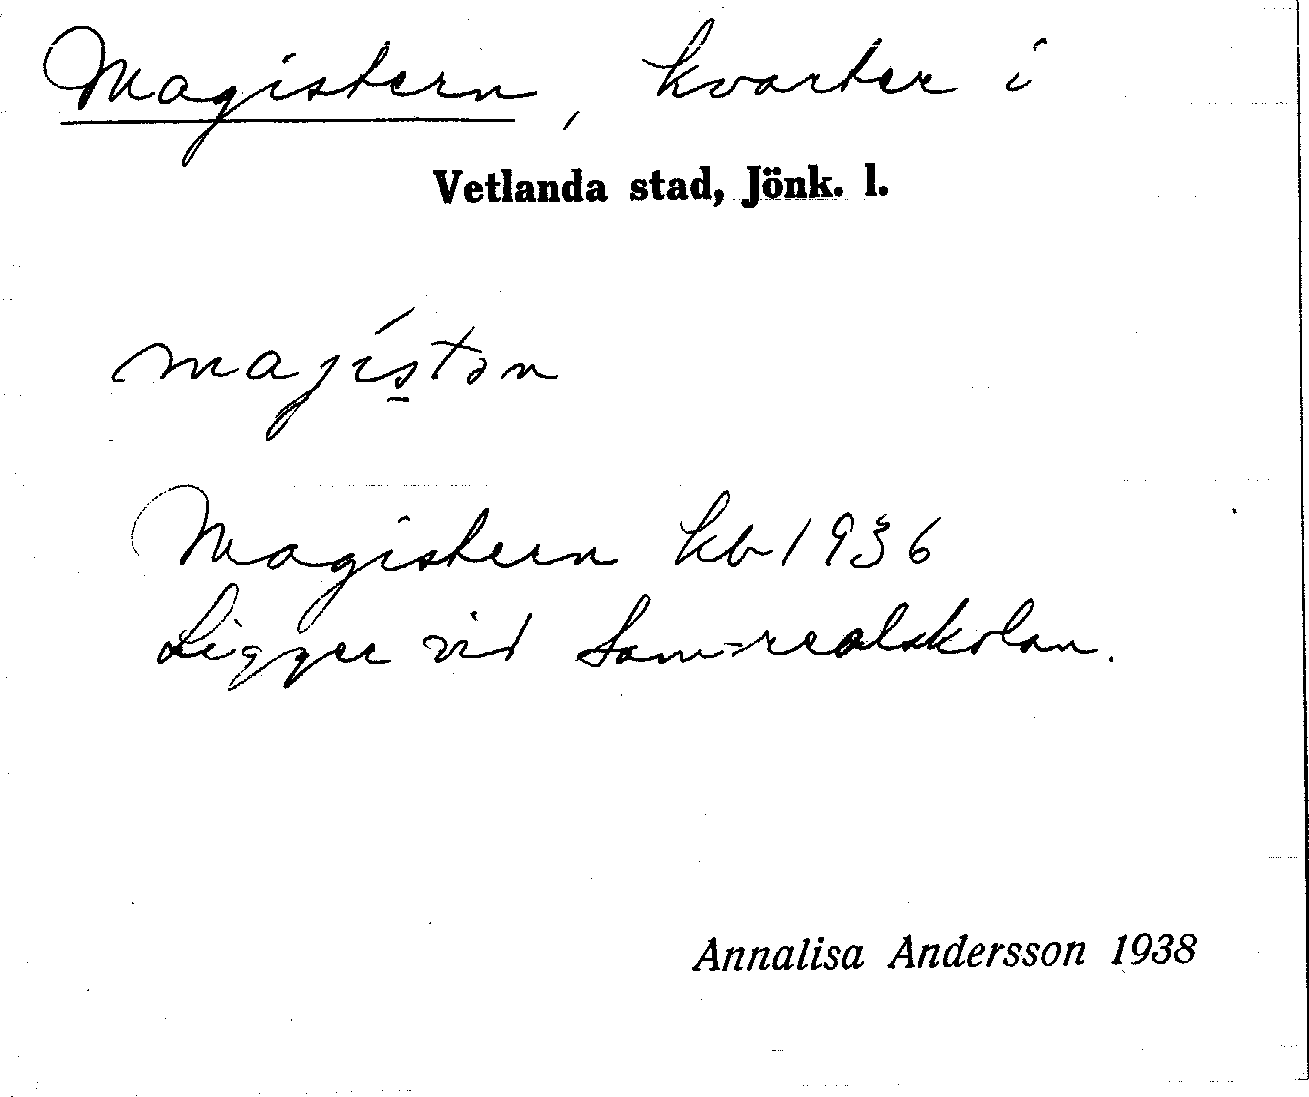 Magistern, kvarter i
Vetlanda stad, Jönk. l.
majístən
Magistern kb 1936
Ligger vid Sam-realskolan.
Annalisa Andersson 1938